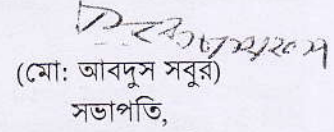 (মো: আবদুস সবুর)
সভাপতি,